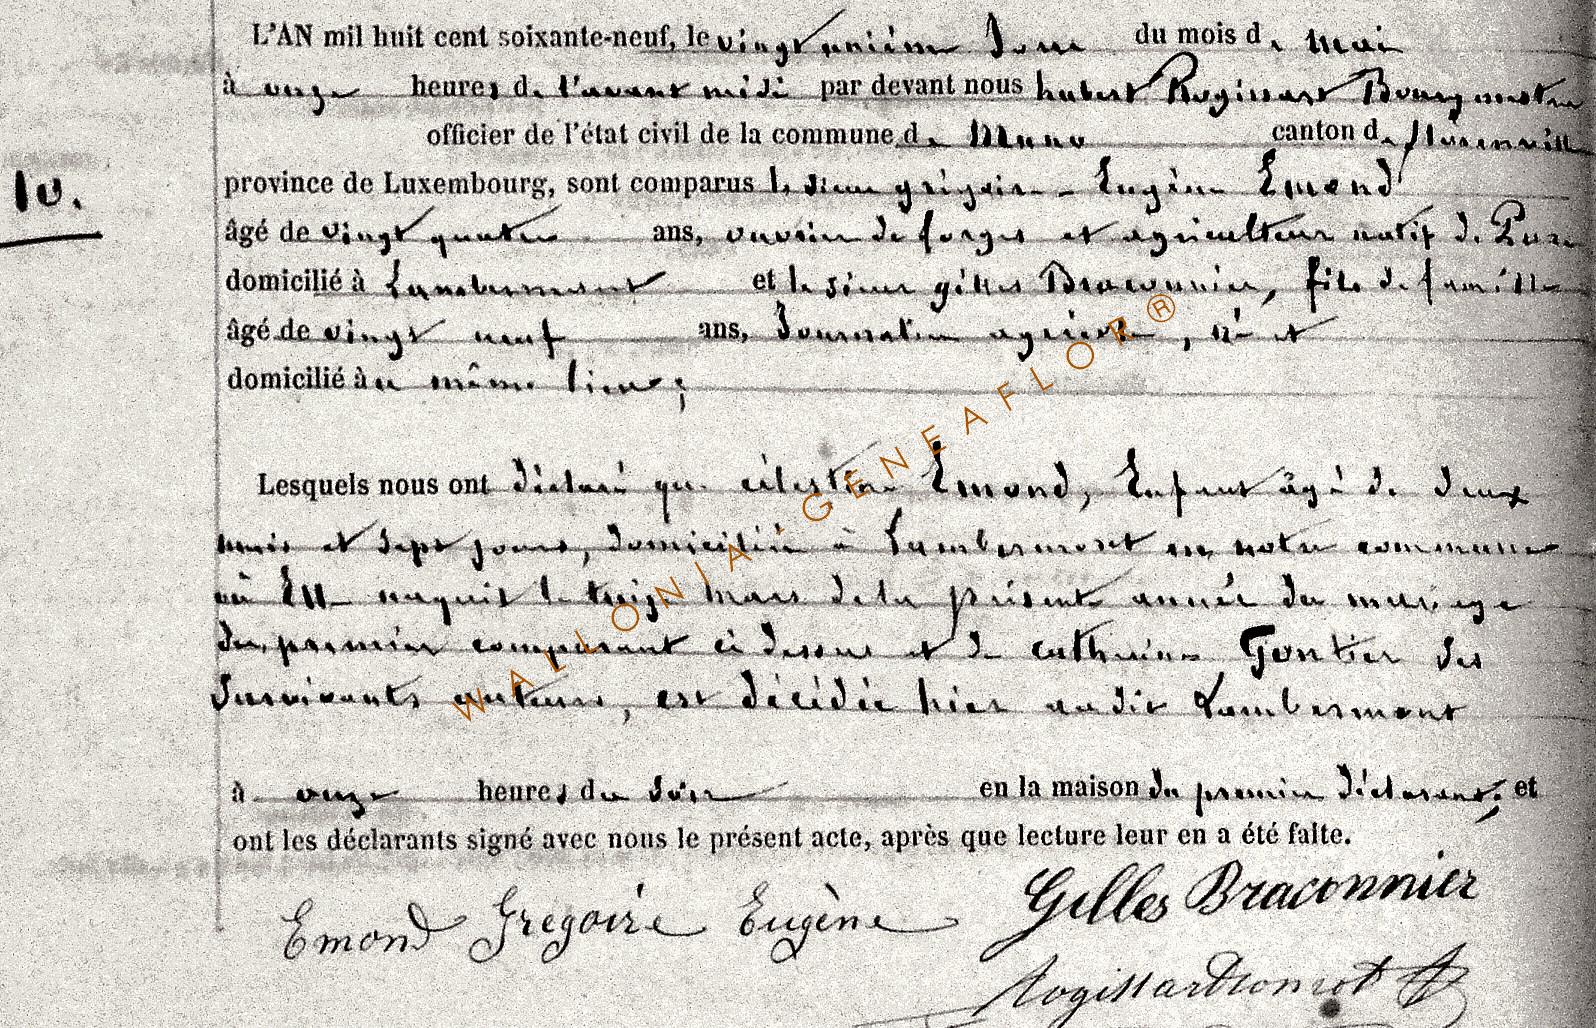 L'AN mil huit cent soixante-neuf, le vingt unième Jour du mois de mai
à onze heures de l'avant midi par devant nous hubert Rogissart Bourgmestre
officier de l'état civil de la commune de Muno canton de florenville
10.
province de Luxembourg, sont comparus le sieur grégoire Eugène Emond
âgé de vingt quatre ans, ouvrier de forges et agriculteur natif de
domicilié à Lambermont et le sieur gilles Braconnier, fils de famille
âgé de vingt neuf ans, Journalier agricole, né et
domicilié au même lieu;
Lesquels nous ont déclaré que célestine Emond, Enfant âgé de deux
mois et sept jours, domiciliée à Lambermont en notre commune
où Elle naquit le treize mars de la présente année du mariage
du premier comparant ci dessus et de catherine Gontier des
survivants auteurs, est décédée hier audit Lambermont
à onze heures du soir en la maison du premier déclarant; et
ont les déclarants signé avec nous le présent acte, après que lecture leur en a été faite.
Emond Gregoire Eugène Gilles Braconnier
WALLONIA-GENEAFLOR®